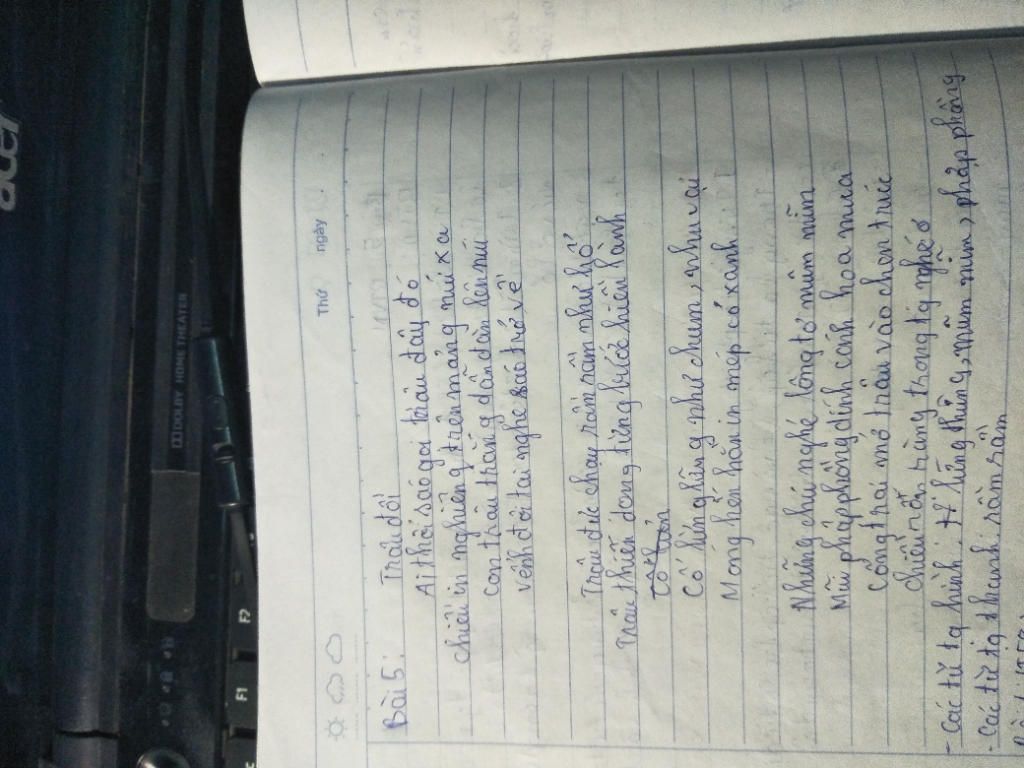 acer
DOLBY HOME THEATER
F1
F2
Thứ ngày
Bài 5:
Trâu đồi
Ai thổi sáo gọi trâu đâu đó
chiều in nghiêng trên mảng núi xa
con trâu trắng dẫn đàn lên núi
vểnh đôi tai nghe sáo trở về
Trâu đực chạy rầm rầm như hổ
Trâu thiến dong từng bước hiền lành
Cổ lừng lững như chum, như vại
Móng hến hằn in mép cỏ xanh
Những chú nghé lông tơ mũm mĩm
Mũi phập phồng dính cánh hoa mua
Cổng trại mở trâu vào chen chúc
chiều rùng trong tiếng nghé ơ
- Các từ tạ hình: mũm mĩm, phập phồng
- Các từ tạ thanh: rầm rầm